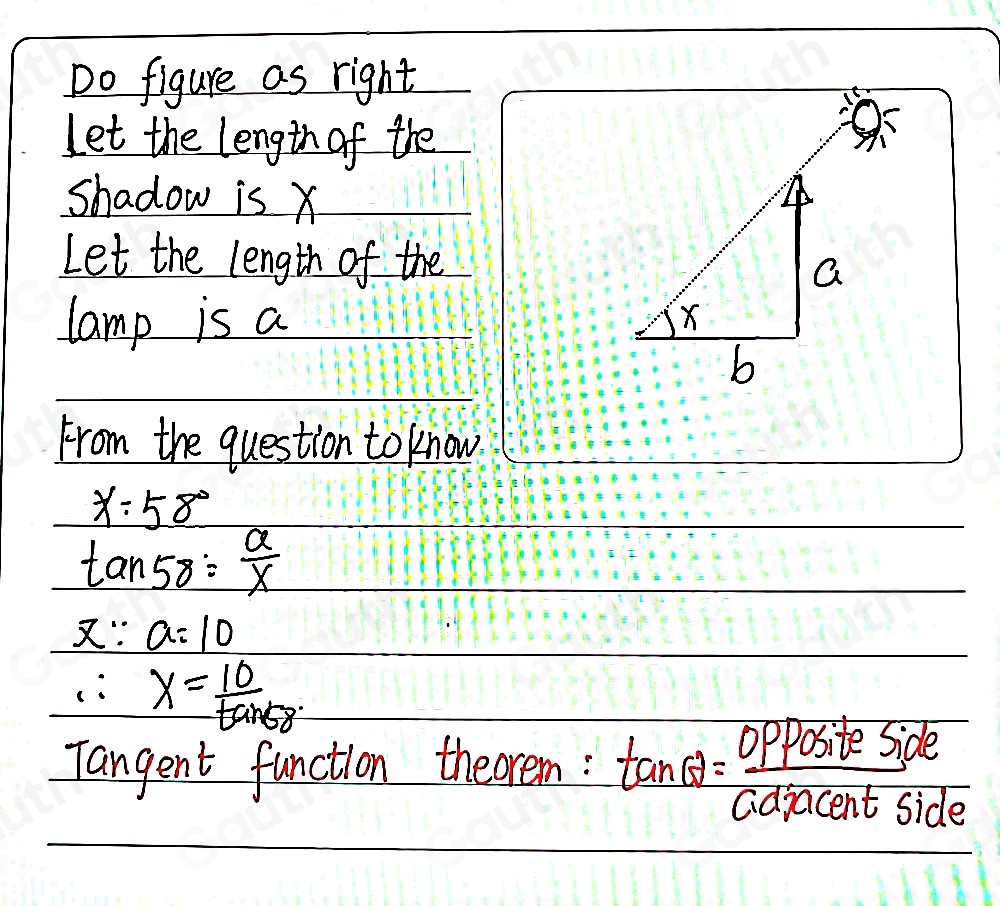 Do figure as right
Let the length of the
Shadow is X
Let the length of the
lamp is a
From the question to know
X = 58°
tan58 = a/X
又∵ a = 10
∴ X = 10/tan58°
Tangent function theorem : tanα = opposite side/adjacent side
a
x
b
Gauth